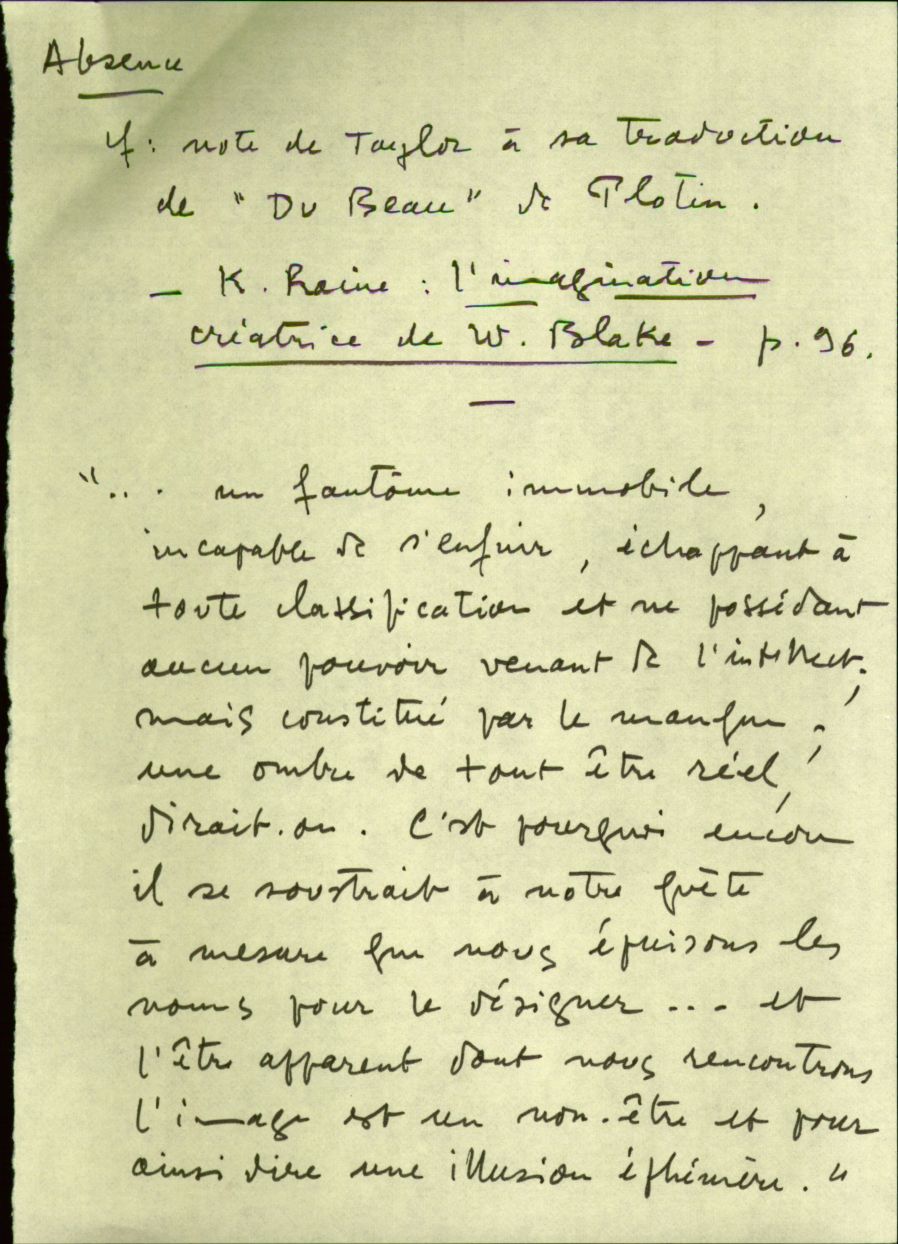 Absence
cf : note de Taylor à sa traduction
de "Du Beau" de Plotin .
– K. Raine : l'imagination
créatrice de W. Blake – p. 96.
—
"... un fantôme immobile,
incapable de s'enfuir, échappant à
toute classification et ne possédant
aucun pouvoir venant de l'intellect,
mais constitué par le manque :
une ombre de tout être réel,
dirait-on. C'est pourquoi encore
il se soustrait à notre quête
à mesure que nous épuisons les
noms pour le désigner ... et
l'être apparent dont nous rencontrons
l'image est un non-être et pour
ainsi dire une illusion éphémère. "